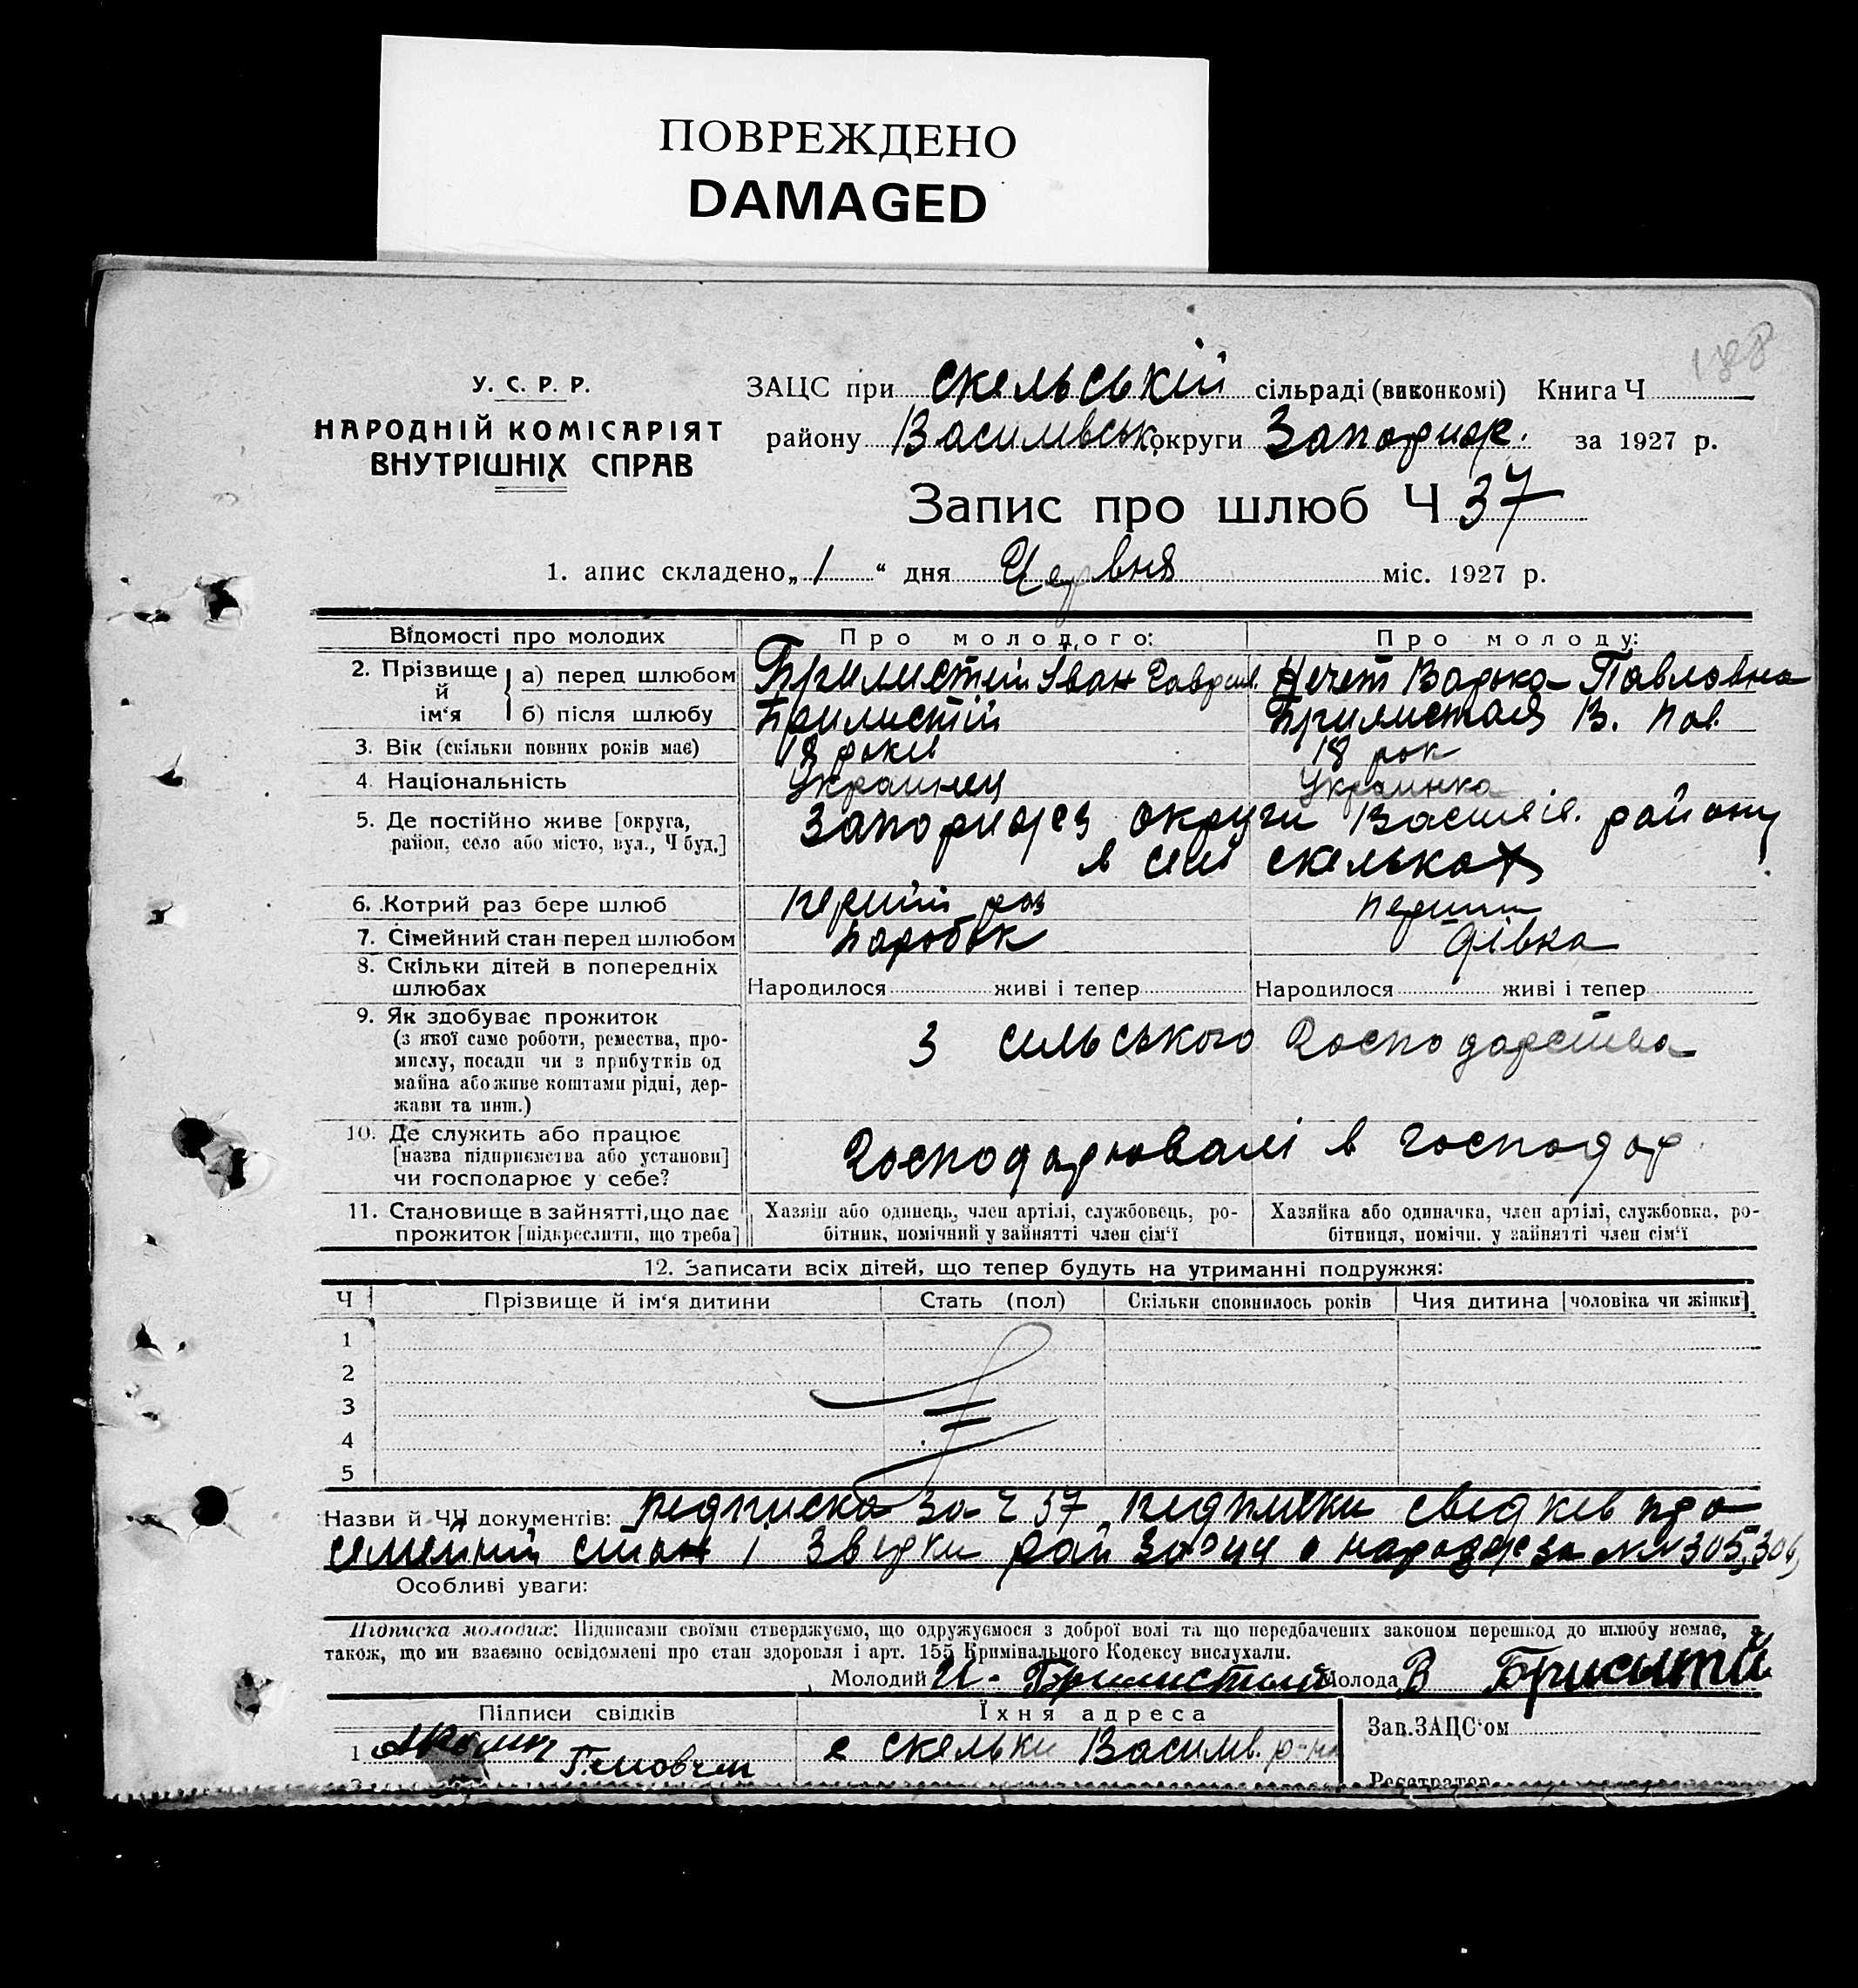 ПОВРЕЖДЕНО
DAMAGED
188
У. С. Р. Р.
НАРОДНІЙ КОМІСАРІЯТ
ВНУТРІШНІХ СПРАВ
ЗАЦС при Скельській сільраді (виконкомі) Книга Ч
району Василівськ. округи Запориж. за 1927 р.
Запис про шлюб Ч 37
1. апис складено „ 1 “ дня Червня міс. 1927 р.
Відомості про молодих
Про молодого:
Про молоду:
2. Прізвище й ім‘я
а) перед шлюбом
Іван Гаврил.
Нечет Варька Павловна
б) після шлюбу
В. Пав.
3. Вік (скільки повних років має)
18 років
18 рок
4. Національність
Украинец
Украинка
5. Де постійно живе [округа,
район, село або місто, вул., Ч буд.]
округи Василів. району
в селі Скельках
6. Котрий раз бере шлюб
перший раз
перший
7. Сімейний стан перед шлюбом
Паробок
дівка
8. Скільки дітей в попередніх
шлюбах
Народилося живі і тепер
Народилося живі і тепер
9. Як здобуває прожиток
(з якої саме роботи, ремества, про-
мислу, посади чи з прибутків од
майна або живе коштами рідні, дер-
жави та инш.)
З сильського господарства
10. Де служить або працює
[назва підприємства або установи]
чи господарює у себе?
Господарювалі в господар
11. Становище в зайнятті, що дає
прожиток [підкреслити, що треба]
Хазяїн або одинець, член артілі, службовець, ро-
бітник, помічний у зайнятті член сім‘ї
Хазяйка або одиначка, член артілі, службовка, ро-
бітниця, помічн. у зайнятті член сім‘ї
12. Записати всіх дітей, що тепер будуть на утриманні подружжя:
Ч
Прізвище й ім‘я дитини
Стать (пол)
Скільки сповнилось років
Чия дитина [чоловіка чи жінки]
1
2
3
4
5
Назви й ЧЧ документів: педписка за Ч 37, педписки свідків про
семейний стан і рай за №№ 305, 306,
Особливі уваги:
Підписка молодих: Підписами своїми стверджуємо, що одружуємося з доброї волі та що передбачених законом перешкод до шлюбу немає, а
також, що ми взаємно освідомлені про стан здоровля і арт. 155 Кримінального Кодексу вислухали.
Молодий И. Молода В
Підписи свідків
Їхня адреса
Зав. ЗАЦС‘ом
1
с Скельки Василів. р-на
Реєстратор